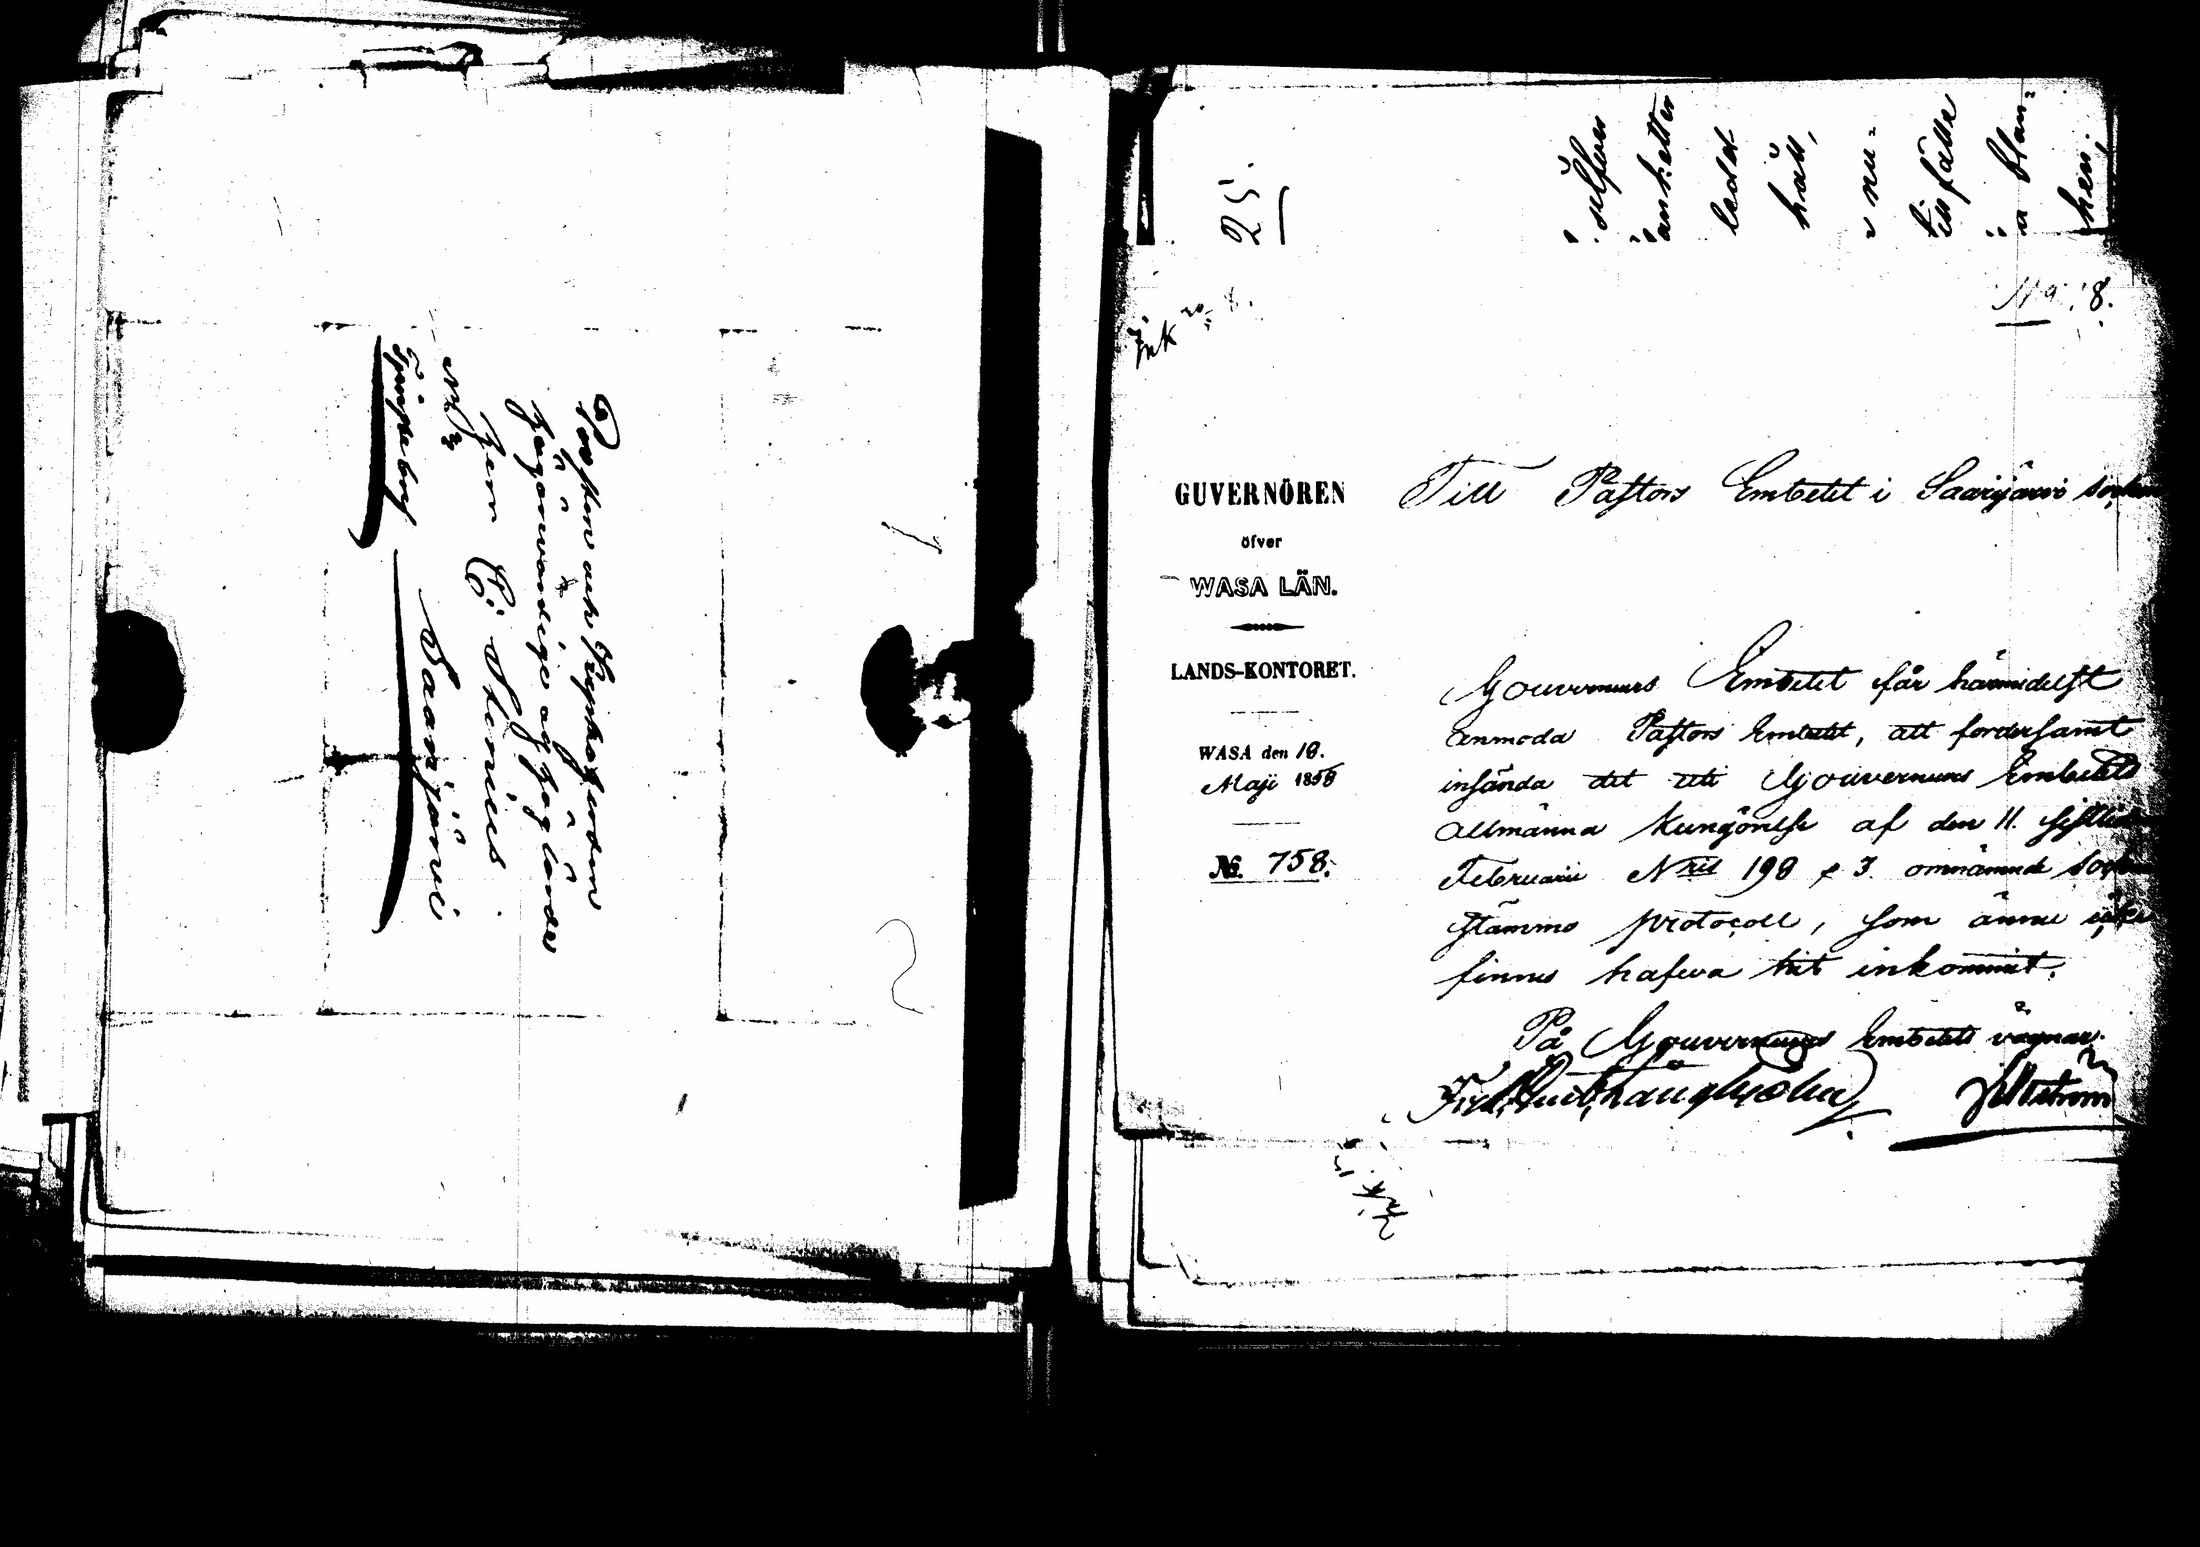 Prosten och Kyrkoherden
Högärevördige och Höglärde
Herr C: Stenius
Saarijärvi
Tjenstebref
25.
silfver
ledet
håll,
N° 8.
GUVERNÖREN
öfver
WASA LÄN.
LANDS-KONTORET.
WASA den 18.
Maji 1858
No. 758.
Till Pastors Embetet i Saarijärvi socken
Gouverneurs Embetet får härmedelst
anmoda Pastors Embetet, att fordersamt
insända det uti Gouverneurs Embetets
allmänna Kungörelse af den 11. sistlidne
Februarii N° 198 p 3. omnämnde socken
stämmo protocoll, som ännu icke
finnes hafva hit inkommit.
På Gouverneurs Embetets vägnar.